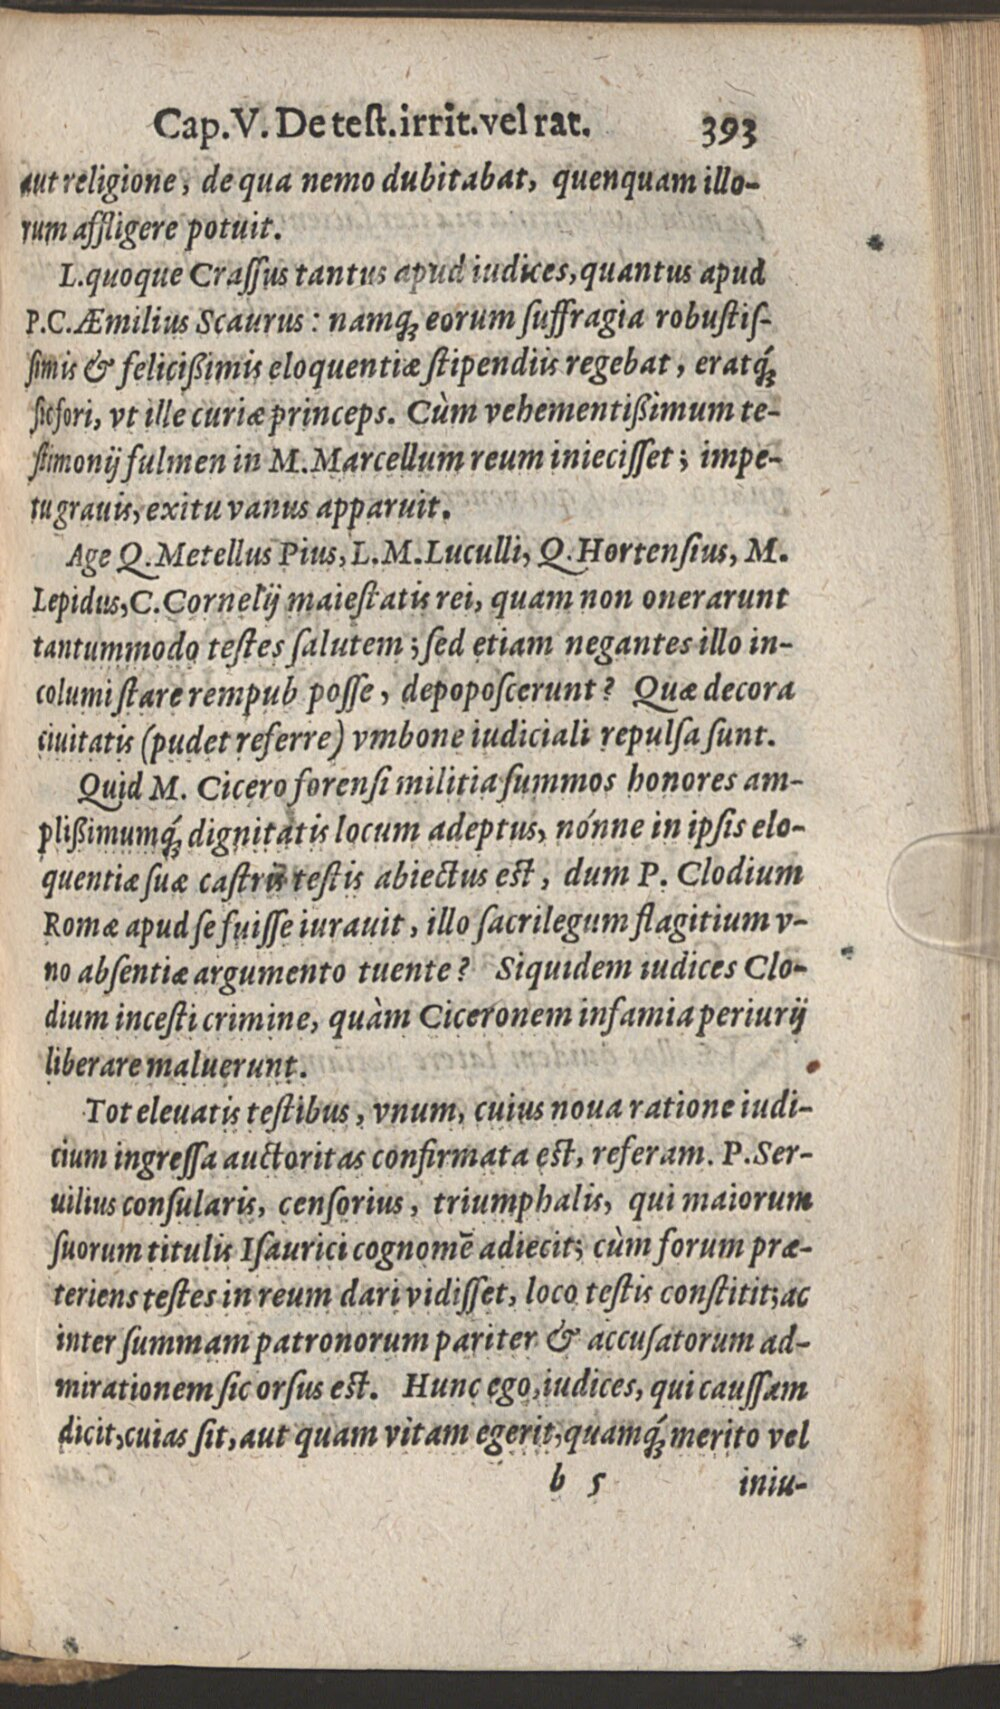 Cap. V. De test. irrit. vel rat. 393
aut religione, de qua nemo dubitabat, quenquam illo-
rum affligere potuit.
L. quoque Crassus tantus apud iudices, quantus apud
P.C. Æmilius Scaurus: namq́; eorum suffragia robustis-
simis & felicißimis eloquentiæ stipendiis regebat, eratq́;
sic fori, vt ille curiæ princeps. Cùm vehementißimum te-
stimonij fulmen in M. Marcellum reum iniecisset; impe-
tu grauis, exitu vanus apparuit.
Age Q. Metellus Pius, L. M. Luculli, Q. Hortensius, M.
Lepidus, C. Cornelij maiestatis rei, quam non onerarunt
tantummodo testes salutem; sed etiam negantes illo in-
columi stare rempub posse, depoposcerunt? Quæ decora
ciuitatis (pudet referre) vmbone iudiciali repulsa sunt.
Quid M. Cicero forensi militia summos honores am-
plißimumq́; dignitatis locum adeptus, nónne in ipsis elo-
quentiæ suæ castris testis abiectus est, dum P. Clodium
Romæ apud se fuisse iurauit, illo sacrilegum flagitium v-
no absentiæ argumento tuente? Siquidem iudices Clo-
dium incesti crimine, quàm Ciceronem infamia periurij
liberare maluerunt.
Tot eleuatis testibus, vnum, cuius noua ratione iudi-
cium ingressa auctoritas confirmata est, referam. P. Ser-
uilius consularis, censorius, triumphalis, qui maiorum
suorum titulis Isaurici cognomē adiecit; cùm forum præ-
teriens testes in reum dari vidisset, loco testis constitit; ac
inter summam patronorum pariter & accusatorum ad-
mirationem sic orsus est. Hunc ego, iudices, qui caussam
dicit, cuias sit, aut quam vitam egerit, quamq́; merito vel
b 5 iniu-